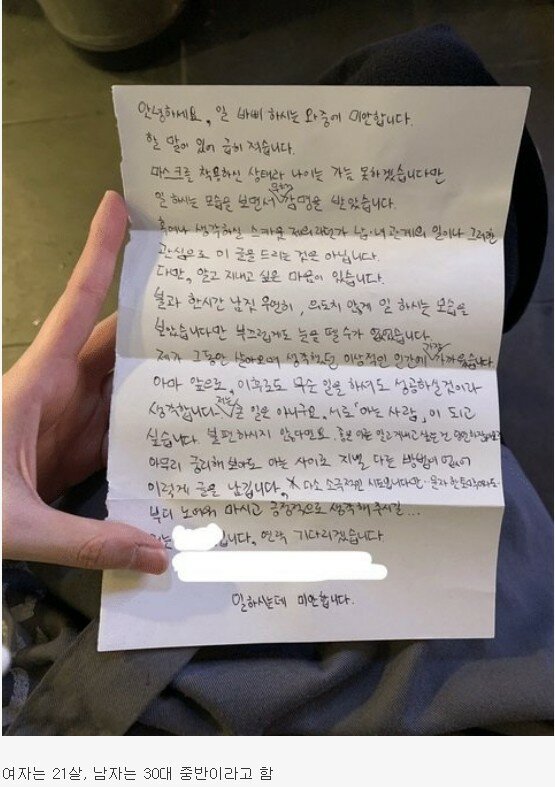 안녕하세요, 일 바삐 하시는 와중에 미안합니다.
할 말이 있어 급히 적습니다.
마스크를 착용하신 상태라 나이는 가늠 못하겠습니다만
일 하시는 모습을 보면서 감명을 받았습니다.
혹여나 생각하실 스카웃 제의라던가 남·녀 관계의 일이나 그러한
관심으로 이 글을 드리는 것은 아닙니다.
다만, 알고 지내고 싶은 마음이 있습니다.
불과 한시간 남짓 우연히, 의도치 않게 일 하시는 모습을
보았습니다만 부끄럽게도 눈을 뗄 수가 없었습니다.
제가 그동안 살아오며 생각했던 이상적인 인간에 가장 가까웠습니다
아마 앞으로, 이후로도 무슨 일을 하셔도 성공하실 것이라
생각합니다. 저는 큰 일은 아니구요, 서로 「아는 사람」이 되고
싶습니다. 불편하시지 않다면요.
아무리 궁리해 보아도 아는 사이로 지낼 다른 방법이 없어
이렇게 글을 남깁니다, 다소 소극적인 시도입니다만·문자 한통이라도
부디 노여워 마시고 긍정적으로 생각해 주시길...
저는 입니다. 연락 기다리겠습니다
일하시는데 미안합니다.
여자는 21살, 남자는 30대 중반이라고 함